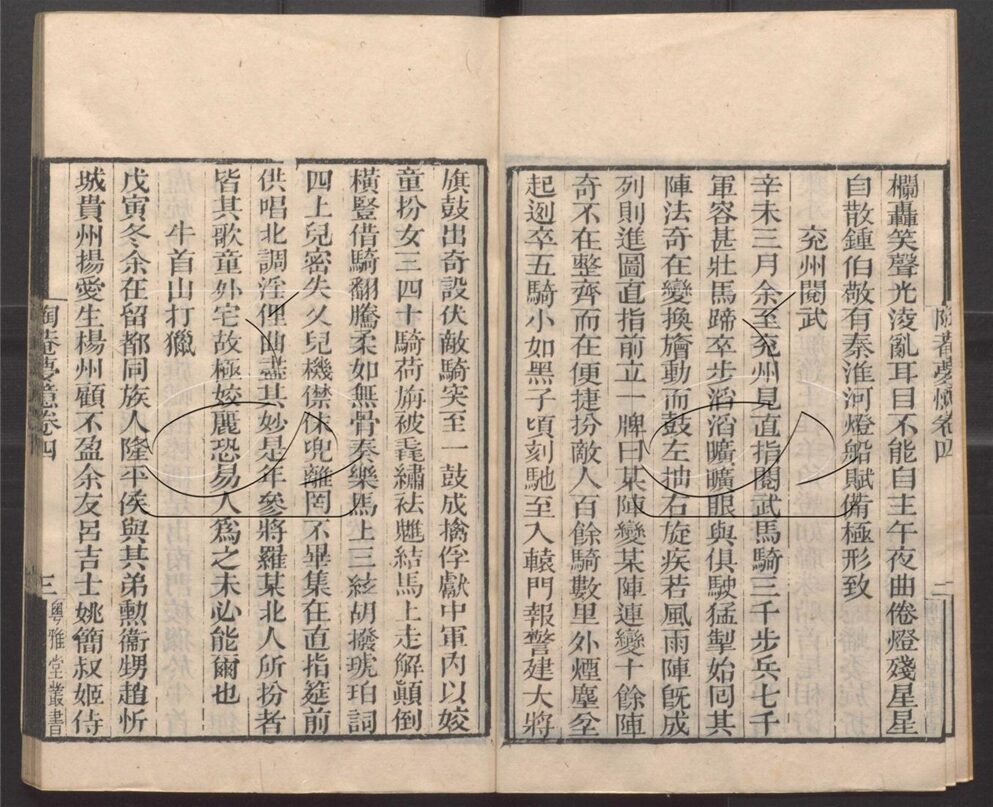 陶菴夢憶卷四 二
欄轟笑聲光淩亂耳目不能自主午夜曲倦燈殘星星
自散鍾伯敬有秦淮河燈船賦備極形致
兗州閱武
辛未三月余至兗州見直指閱武馬騎三千步兵七千
軍容甚壯馬蹄卒步滔滔曠曠眼與俱駛猛掣始囘其
陣法奇在變換旝動而鼓左抽右旋疾若風雨陣旣成
列則進圖直指前立一牌曰某陣變某陣連變十餘陣
奇不在整齊而在便捷扮敵人百餘騎數里外煙塵坌
起迾卒五騎小如黑子頃刻馳至入轅門報警建大將
旗鼓出奇設伏敵騎突至一鼓成擒俘獻中軍內以姣
童扮女三四十騎荷旃被毳繡袪魋結馬上走解顛倒
橫豎借騎翻騰柔如無骨奏樂馬上三絃胡撥琥珀詞
四上兒密失乂兒機僸侏兜離罔不畢集在直指筵前
供唱北調淫俚曲盡其妙是年參將羅某北人所扮者
皆其歌童外宅故極姣麗恐易人爲之未必能爾也
牛首山打獵
戊寅冬余在留都同族人隆平侯與其弟勳衞甥趙忻
城貴州揚愛生楊州顧不盈余友呂吉士姚簡叔姬侍
陶菴夢憶卷四 三 粤雅堂叢書